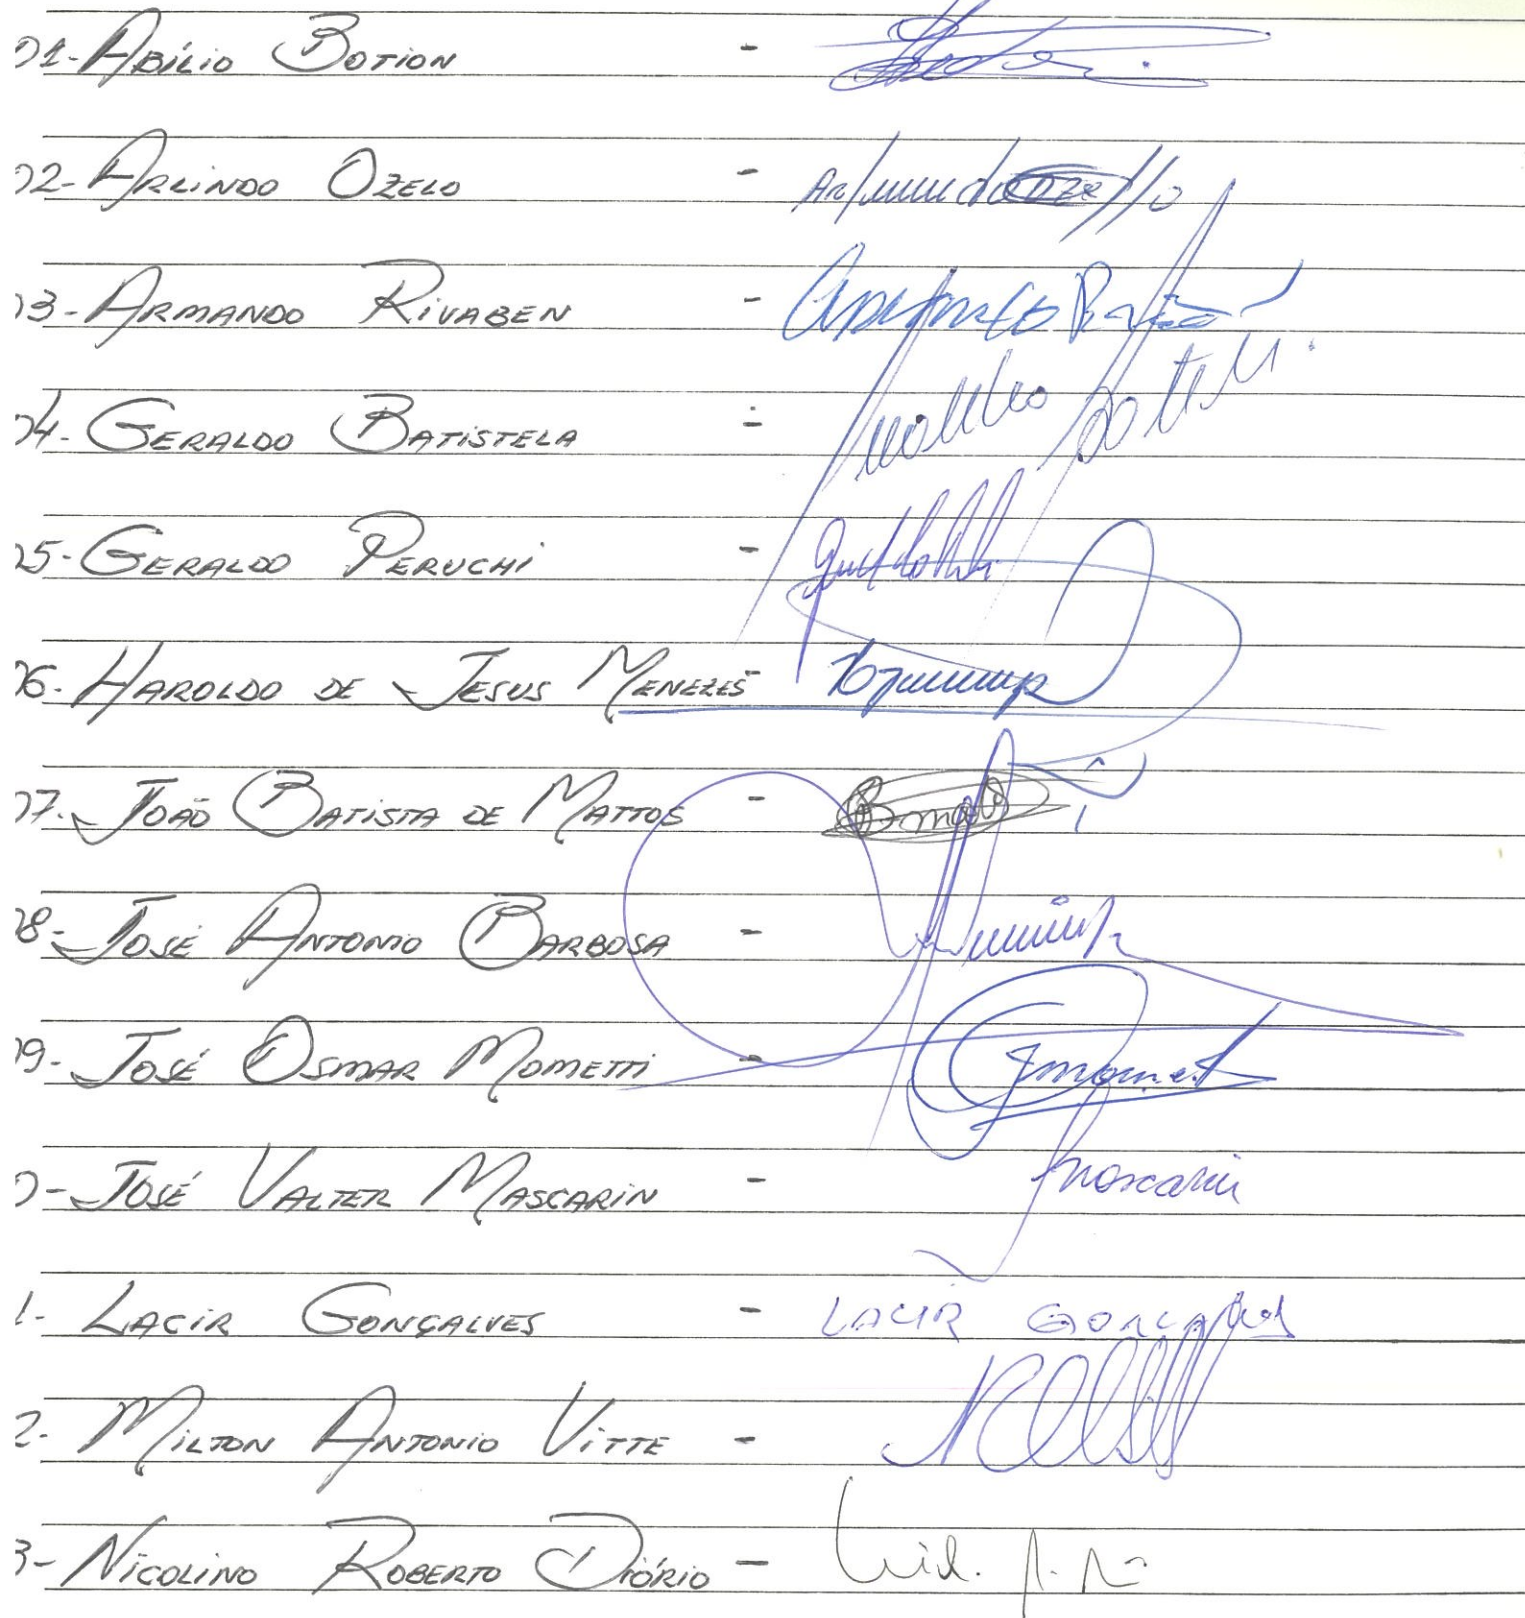 01- Abílio Botion -
02- Arlindo Ozelo -
03- Armando Rivaben -
04- Geraldo Batistela -
05- Geraldo Peruchi -
06- Haroldo de Jesus Menezes -
07- João Batista de Mattos -
08- José Antonio Barbosa -
09- José Osmar Mometti -
0- José Valter Mascarin - Mascarin
1- Lacir Gonçalves - Lacir Gonçalves
2- Milton Antonio Vitte -
3- Nicolino Roberto Diório -